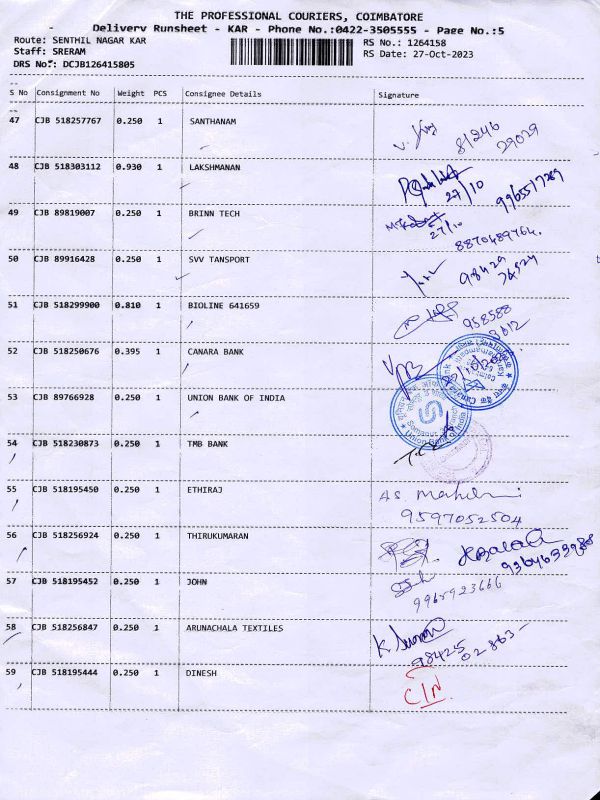 THE PROFESSIONAL COURIERS, COIMBATORE
Delivery Runsheet - KAR - Phone No.:0422-3505555 - Page No.:5
Route: SENTHIL NAGAR KAR
RS No.: 1264158
Staff: SRERAM
RS Date: 27-Oct-2023
DRS No.: DCJB126415805
S No Consignment No Weight PCS Consignee Details Signature
47 CJB 518257767 0.250 1 SANTHANAM
81246
29029
48 CJB 518303112 0.930 1 LAKSHMANAN
27/10
9965517289
49 CJB 89819007 0.250 1 BRINN TECH
27/10
8870489764.
50 CJB 89916428 0.250 1 SVV TANSPORT
98429
51 CJB 518299900 0.810 1 BIOLINE 641659
958588
3012
52 CJB 518250676 0.395 1 CANARA BANK
53 CJB 89766928 0.250 1 UNION BANK OF INDIA
Union Bank of India
54 CJB 518230873 0.250 1 TMB BANK
55 CJB 518195450 0.250 1 ETHIRAJ
9597052504
56 CJB 518256924 0.250 1 THIRUKUMARAN
57 CJB 518195452 0.250 1 JOHN
9965923666
58 CJB 518256847 0.250 1 ARUNACHALA TEXTILES
98425
02863
59 CJB 518195444 0.250 1 DINESH
CIN